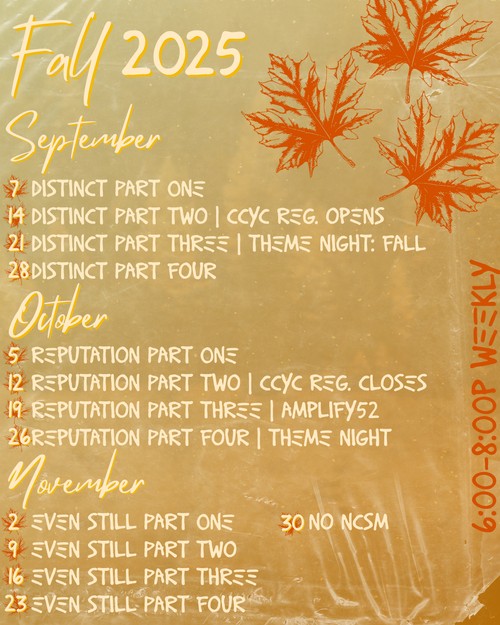 Fall 2025
September
7 DISTINCT PART ONE
14 DISTINCT PART TWO | CCYC REG. OPENS
21 DISTINCT PART THREE | THEME NIGHT: FALL
28 DISTINCT PART FOUR
October
5 REPUTATION PART ONE
12 REPUTATION PART TWO | CCYC REG. CLOSES
19 REPUTATION PART THREE | AMPLIFY52
26 REPUTATION PART FOUR | THEME NIGHT
November
2 EVEN STILL PART ONE
30 NO NCSM
9 EVEN STILL PART TWO
16 EVEN STILL PART THREE
23 EVEN STILL PART FOUR
6:00-8:00P WEEKLY